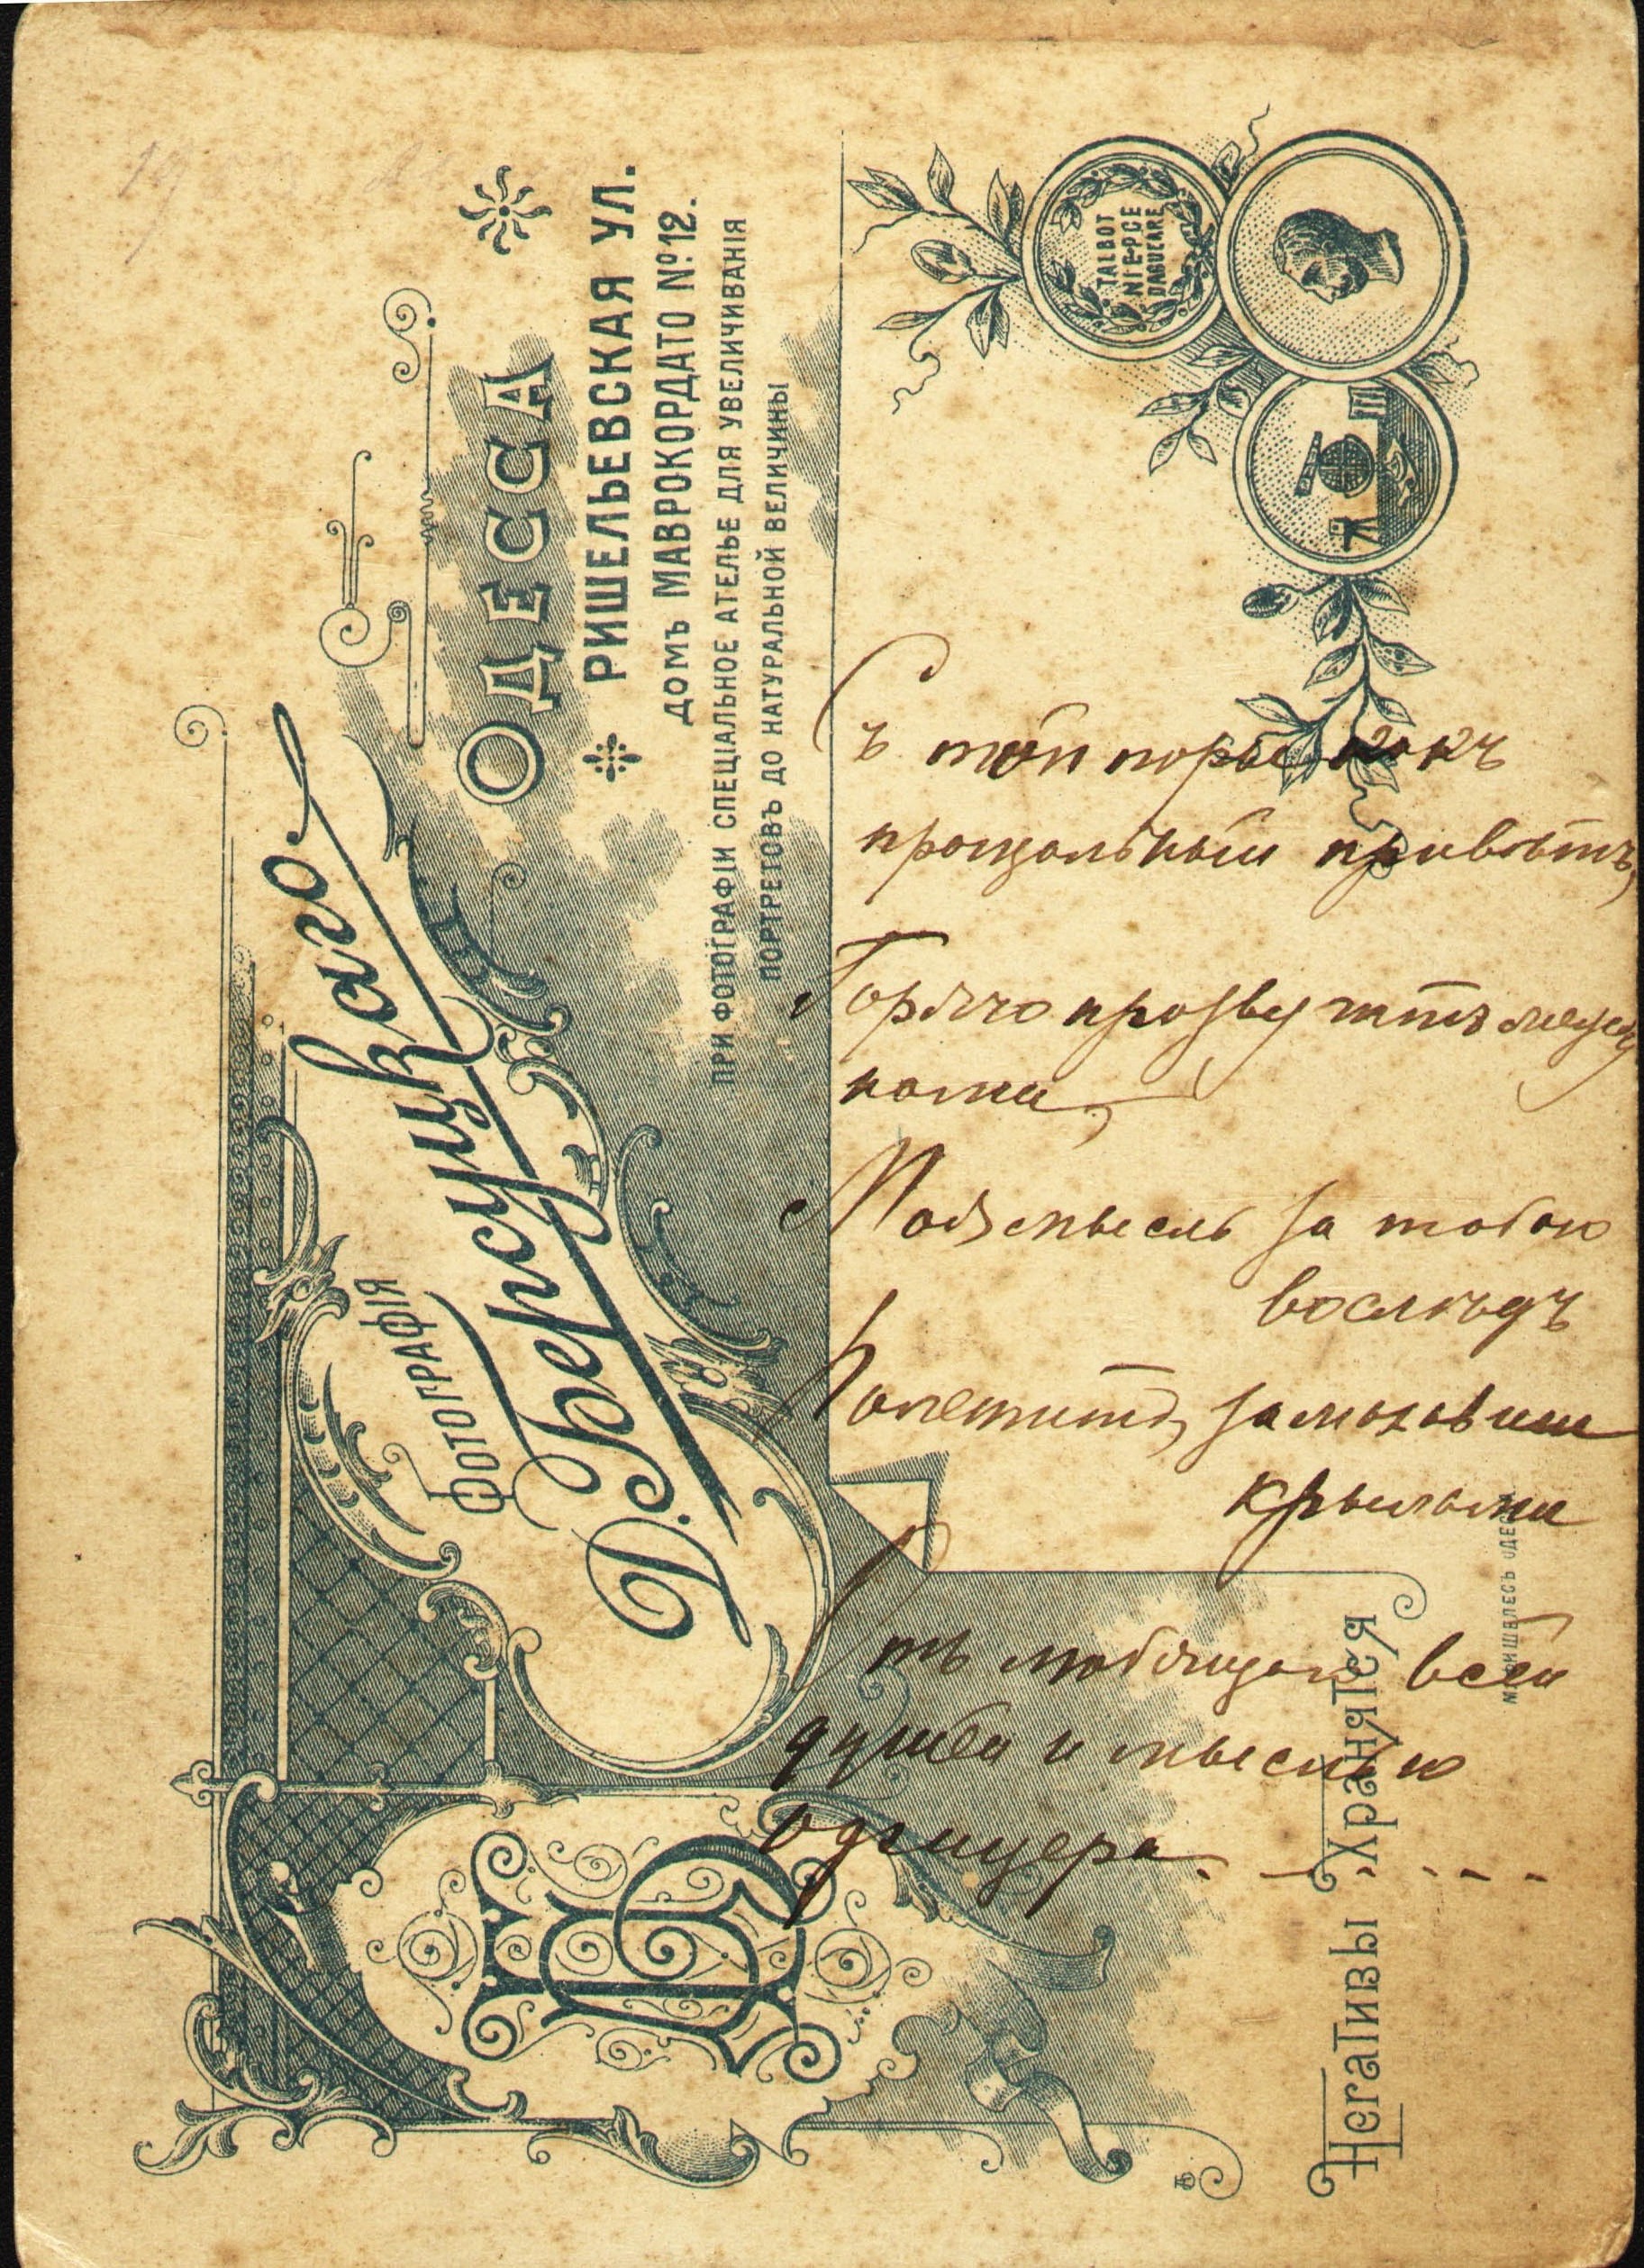 ФОТОГРАФІЯ
Д. Версуцкаго
ОДЕССА
РИШЕЛЬЕВСКАЯ УЛ.
ДОМЪ МАВРОКОРДАТО №12.
ПРИ ФОТОГРАФІИ СПЕЦІАЛЬНОЕ АТЕЛЬЕ ДЛЯ УВЕЛИЧИВАНІЯ
ПОРТРЕТОВЪ ДО НАТУРАЛЬНОЙ ВЕЛИЧИНЫ
TALBOT
NIEPCE
DAGUERRE
Негативы Хранятся
Съ той поры какъ
прощальный привѣтъ,
Горячо прозвучитъ между
нами,
Моя мысль за тобою
вослѣдъ
Полетитъ, замахавши
крылами
Отъ любящаго всей
душей и мыслью
офицера. - - - - -